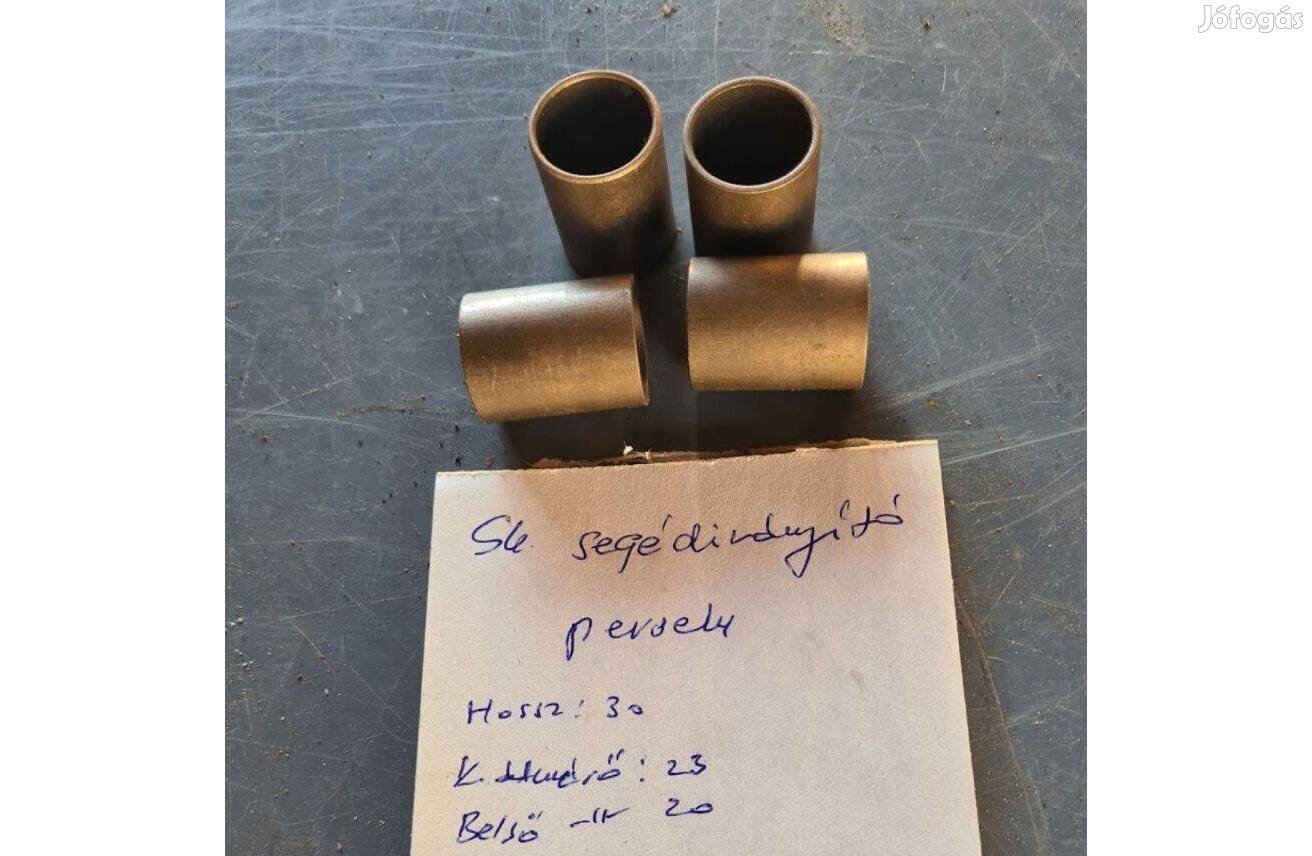 Jófogás
Sk. segédirányító
persely
Hossz: 30
K. átmérő: 23
Belső -11- 20